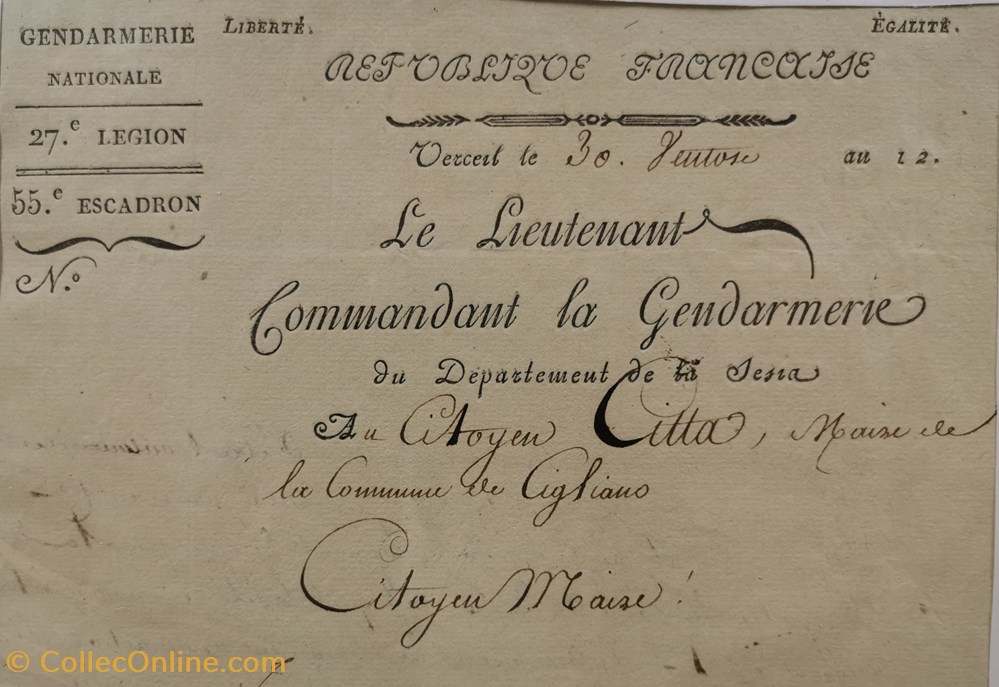 GENDARMERIE
NATIONALE
27.e LEGION
55.e ESCADRON
N.o
LIBERTÉ.
ÉGALITÉ.
REPUBLIQUE FRANCAISE
Verceil le 30. Ventose an 12.
Le Lieutenant
Commandant la Gendarmerie
du Département de la Sesia
Au Citoyen Citta, Maire de
la Commune de Cigliano
Citoyen Maire!
© CollecOnline.com